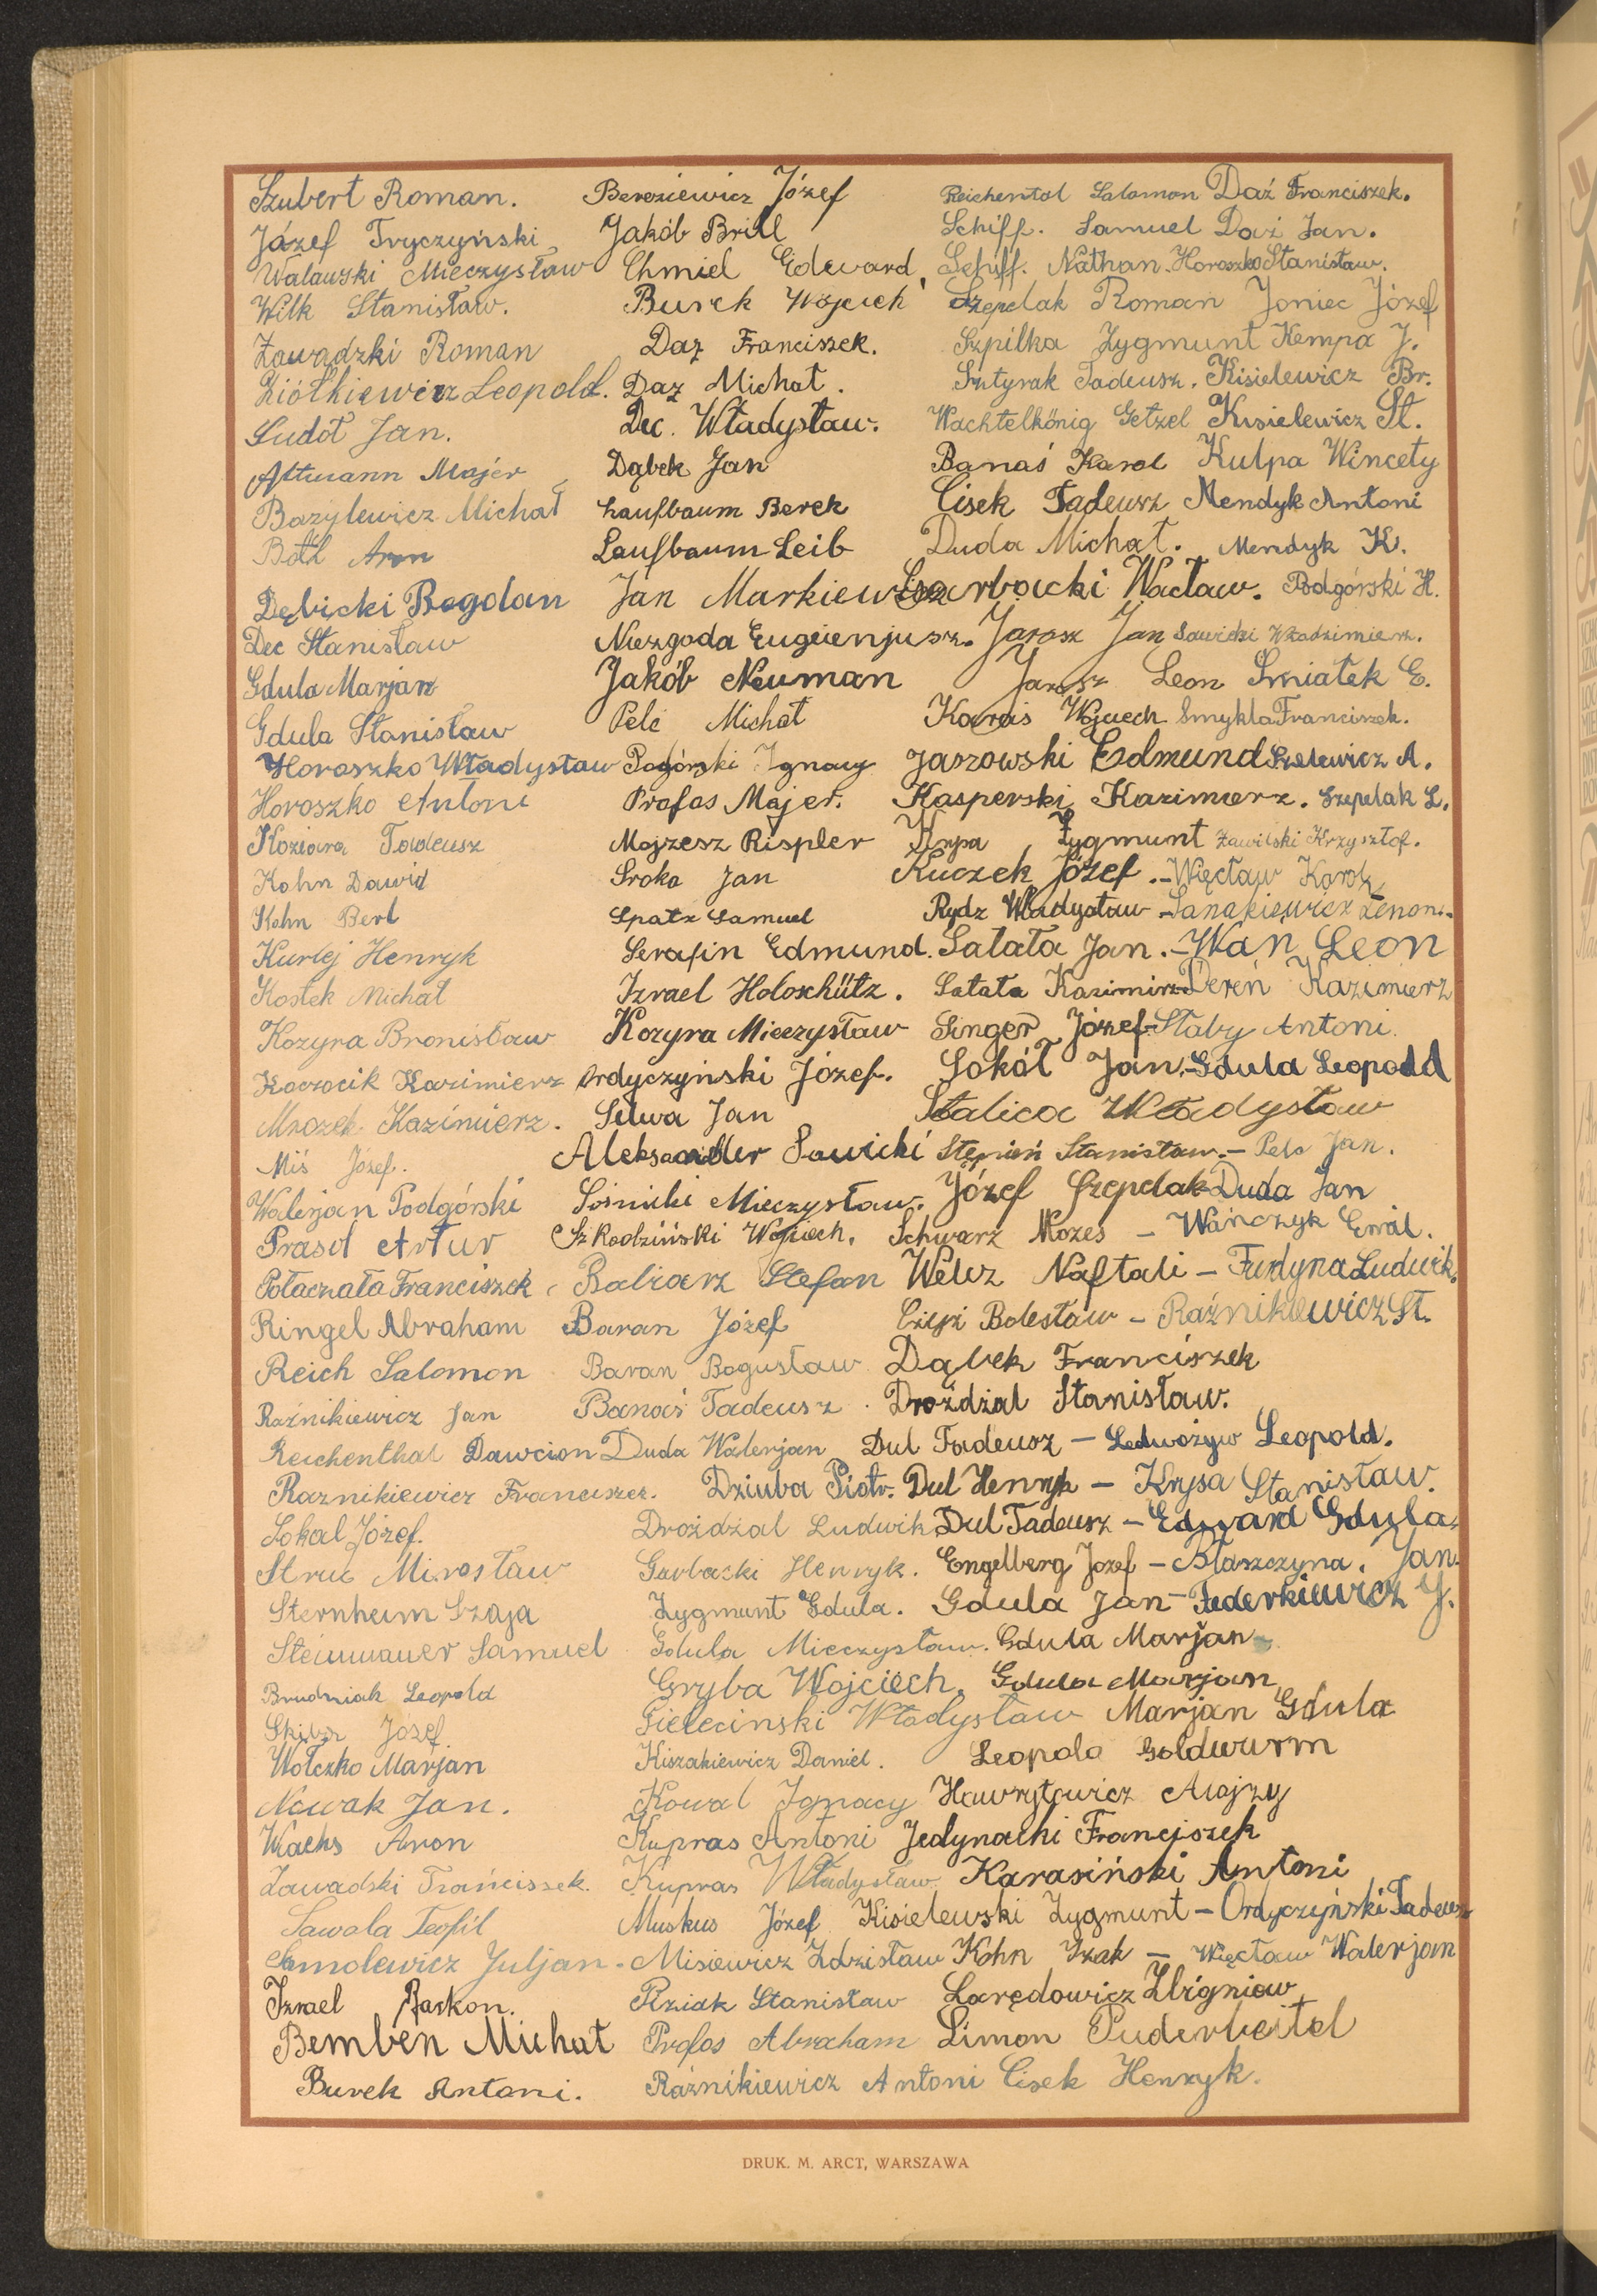 Szubert Roman. Bereziewicz Józef Reichental Salomon Daź Franciszek.
Józef Tryczyński Jakób Brill Schiff. Samuel Daź Jan.
Walawski Mieczysław Chmiel Edward, Schiff. Nathan. Horoszko Stanisław.
Wilk Stanisław. Burek Wojciech Szepelak Roman Joniec Józef
Zawadzki Roman Daź Franciszek. Szpilka Zygmunt Kempa J.
Ziółkiewicz Leopold. Daź Michał. Sztyrak Tadeusz. Kisielewicz Br.
Sudoł Jan. Dec. Władysław. Wachtelkönig Getzel Kisielewicz St.
Altmann Majer Dąbek Jan Banaś Karol Kulpa Wincety
Bazylewicz Michał Laufbaum Berek Cisek Tadeusz Mendyk Antoni
Aron Laufbaum Leib Duda Michał. Mendyk K.
Dębicki Bogdan Jan Markiewicz Garbacki Wacław. Podgórski H.
Dec Stanisław Niezgoda Eugieniusz. Jarosz Jan Sawicki Włodzimierz.
Gdula Marjan Jakób Neuman Jarosz Leon Śmiałek E.
Gdula Stanisław Pelc Michał Karaś Wojciech Smykla Franciszek.
Horoszko Władysław Pogórski Ignacy Jaszowski Edmund A.
Horoszko Antoni Profas Majer. Kasperski Kazimierz. Szepelak L.
Koziara Tadeusz Mojzesz Rispler Krypa Zygmunt Zawilski Krzysztof.
Kohn Dawid Sroka Jan Kuczek Józef. - Więcław Karol
Kohn Berl Spatz Samuel Rydz Władysław - Sanakiewicz Zenon.
Kurlej Henryk Serafin Edmund. Sałata Jan. - Wan Leon
Kostek Michał Izrael Holoschütz. Sałata Kazimierz - Dereń Kazimierz
Kozyra Bronisław Kozyra Mieczysław Singer Józef - Słaby Antoni.
Koczocik Kazimierz Ordyczyński Józef. Sokół Jan. - Gdula Leopold
Mrozek Kazimierz. Silwa Jan Stalica Władysław
Miś Józef. Aleksander Sawicki Stępień Stanisław. - Pelc Jan.
Walerjan Podgórski Sośnicki Mieczysław. Józef Szepelak - Duda Jan
Prasoł Artur Szkodziński Wojciech. Schwarz Mozes - Wańczyk Emil.
Połaczała Franciszek Balicarz Stefan Welcz Naftali - Furdyna Ludwik.
Ringel Abraham Baran Józef Bolesław - Raźnikiewicz St.
Reich Salomon Baran Bogusław Dąbek Franciszek
Raźnikiewicz Jan Banaś Tadeusz. Droździal Stanisław.
Reichenthal Dawcion Duda Walerjan Dul Tadeusz - Ledwożyw Leopold.
Raznikiewicz Franciszek. Dziuba Piotr. Dul Henryk - Krysa Stanisław.
Sokal Józef. Droździal Ludwik Dul Tadeusz - Edward Gdula.
Struc Mirosław Garbacki Henryk. Engelberg Józef - Błaszczyna. Jan.
Sternheim Szaja Zygmunt Gdula. Gdula Jan - Federkiewicz J.
Samuel Gdula Mieczysław. Gdula Marjan
Brudniak Leopold Gryba Wojciech. Gdula Marjan
Skiba Józef. Gieleciński Władysław Marjan Gdula
Wołczko Marjan Kiszakiewicz Daniel. Leopold Goldwurm
Nowak Jan. Kowal Ignacy Hawryłowicz Alojzy
Wachs Aron Kupras Antoni Jedynacki Franciszek
Zawadski Franciszek. Kupras Władysław. Karasiński Antoni
Sawala Teofil Muskus Józef Kisielewski Zygmunt - Ordyczyński Tadeusz
Smolewicz Juljan. Misiewicz Zdzisław Kohn Izak - Więcław Walerjan
Izrael Raskon. Rziak Stanisław Laredowicz Zbigniew
Bemben Michał Profos Abraham Simon Puderbeitel
Burek Antoni. Raźnikiewicz Antoni Cisek Henryk.
DRUK. M. ARCT, WARSZAWA